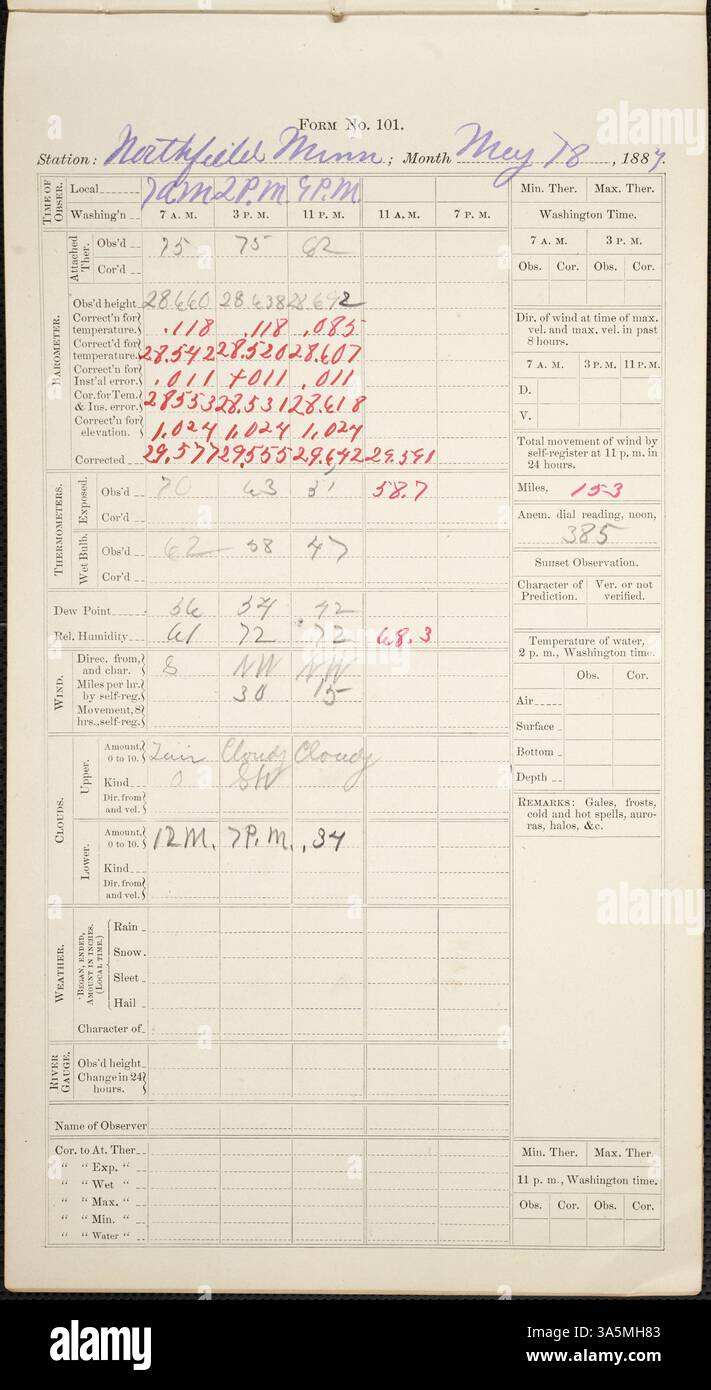 FORM No. 101.
Station: Northfield Minn; Month May 18, 1887.
TIME OF OBSER.
Local 7 a.M 2 P.M 9 P.M
Washing'n 7 A. M. 3 P. M. 11 P. M. 11 A. M. 7 P. M.
BAROMETER.
Attached Ther.
Obs'd 75 75 62
Cor'd
Obs'd height 28.660 28.638 28.692
Correct'n for temperature. .118 .118 .085
Correct'd for temperature. 28.542 28.520 28.607
Correct'n for Inst'al error. .011 +011 .011
Cor. for Tem. & Ins. error. 28553 28.531 28.618
Correct'n for elevation. 1,024 1,024 1,024
Corrected 29,577 29,555 29,642 29.591
THERMOMETERS.
Exposed.
Obs'd 70 63 51 58.7
Cor'd
Wet Bulb.
Obs'd 62 58 47
Cor'd
Dew Point 56 54 42
Rel. Humidity 61 72 72 68.3
WIND.
Direc. from, and char. S NW NW
Miles per hr. by self-reg. 30 15
Movement, 8 hrs., self-reg.
CLOUDS.
Upper.
Amount, 0 to 10. Fair Cloudy Cloudy
Kind 0 SW
Dir. from and vel.
Lower.
Amount, 0 to 10. 12 M. 7 P.M. .34
Kind
Dir. from and vel.
WEATHER.
BEGAN, ENDED, AMOUNT IN INCHES. (LOCAL TIME.)
Rain
Snow
Sleet
Hail
Character of
RIVER GAUGE.
Obs'd height
Change in 24 hours.
Name of Observer
Cor. to At. Ther
“ “ Exp. “
“ “ Wet “
“ “ Max. “
“ “ Min. “
“ “ Water “
Min. Ther. Max. Ther.
Washington Time.
7 A. M. 3 P. M.
Obs. Cor. Obs. Cor.
Dir. of wind at time of max. vel. and max. vel. in past 8 hours.
7 A. M. 3 P. M. 11 P. M.
D.
V.
Total movement of wind by self-register at 11 p. m. in 24 hours.
Miles, 153
Anem. dial reading, noon,
385
Sunset Observation.
Character of Prediction. Ver. or not verified.
Temperature of water, 2 p. m., Washington time.
Obs. Cor.
Air
Surface
Bottom
Depth
REMARKS: Gales, frosts, cold and hot spells, auroras, halos, &c.
Min. Ther. Max. Ther.
11 p. m., Washington time.
Obs. Cor. Obs. Cor.
alamy
alamy
alamy
alamy
Image ID: 3A5MH83
www.alamy.com